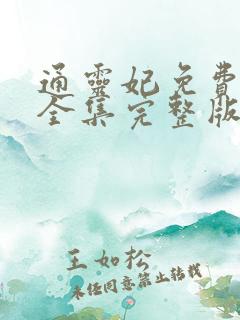 通靈妃免費
全集完整版
王如松
未经同意禁止转载